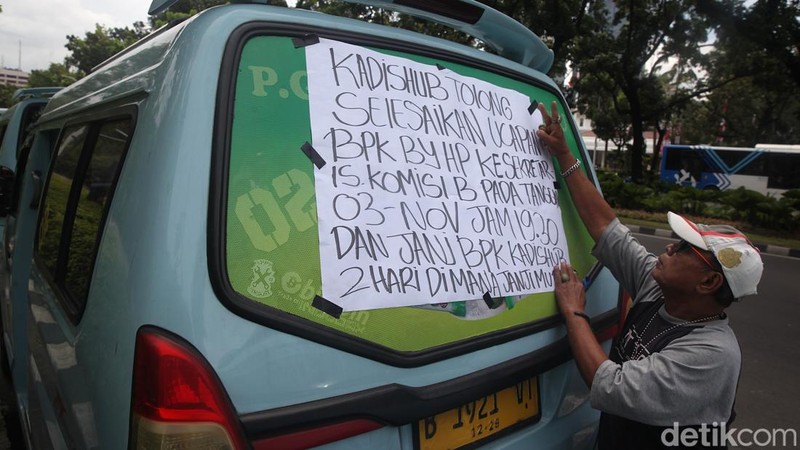 KADISHUB TOLONG
SELESAIKAN UCAPAN
BPK BY HP KE SEKRETAR
IS. KOMISI B PADA TANGGAL
03 NOV JAM 19.30
DAN JANJI BPK KADISHUB
2 HARI DIMANA JANJI MU
P.C
02
B 1921 VT
12-28
detikcom